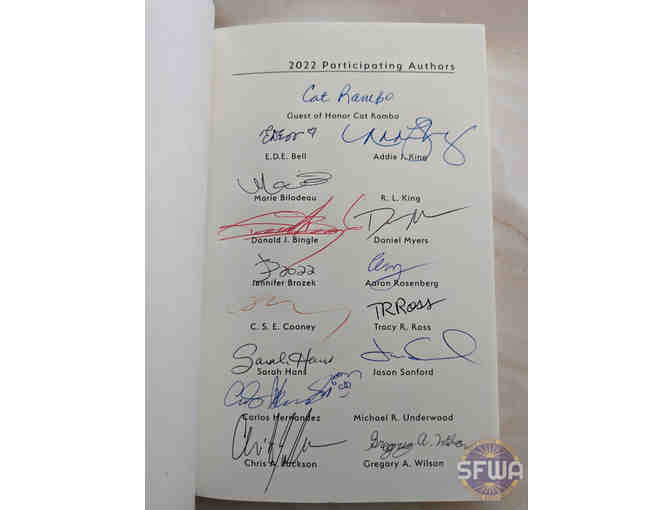 2022 Participating Authors
Cat Rambo
Guest of Honor Cat Rambo
E.D.E. Bell Addie J. King
Marie Bilodeau R. L. King
Donald J. Bingle Daniel Myers
2022
Jennifer Brozek Aaron Rosenberg
TRRoss
C. S. E. Cooney Tracy R. Ross
Sarah Hans
Sarah Hans Jason Sanford
Carlos Hernandez Michael R. Underwood
Gregory A. Wilson
Chris A. Jackson Gregory A. Wilson
SFWA